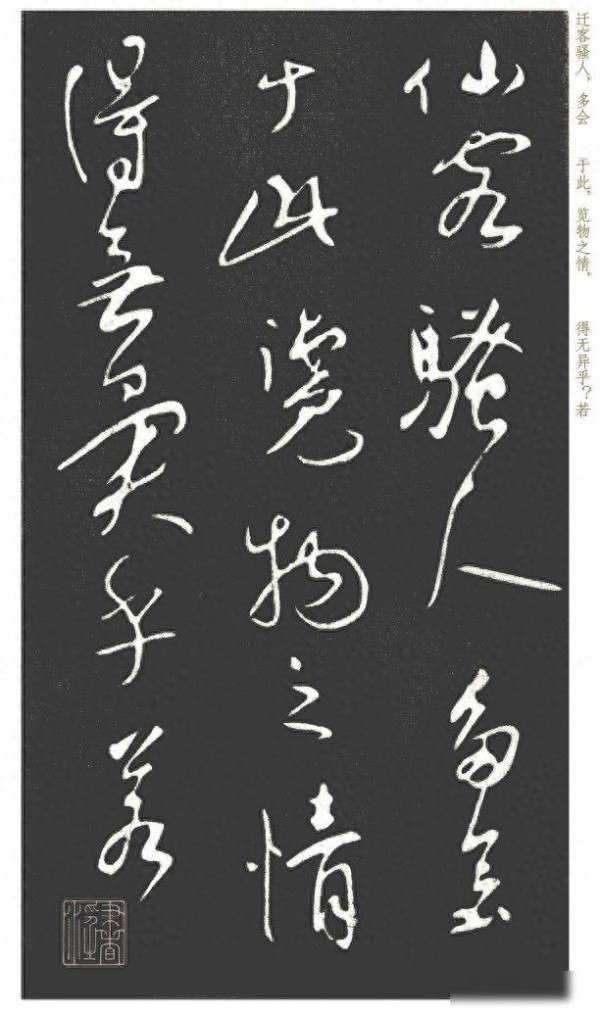 迁客骚人，多会 于此，览物之情， 得无异乎？若
仙客騷人多會
于此覽物之情
得無異乎若